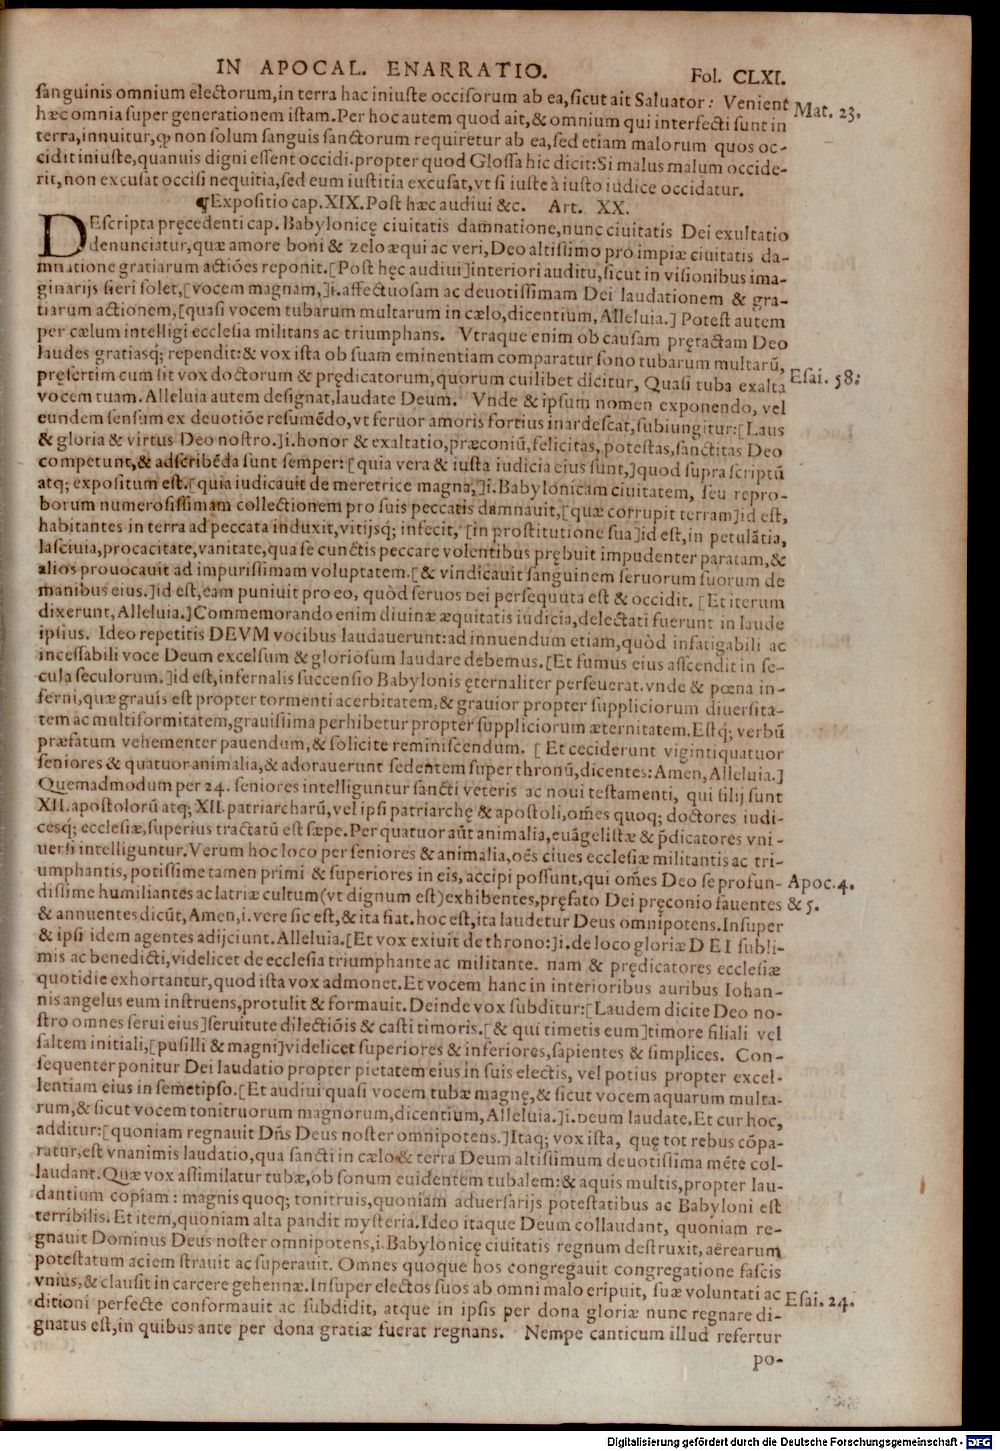 IN APOCAL. ENARRATIO. Fol. CLXI.
sanguinis omnium electorum, in terra hac iniuste occisorum ab ea, sicut ait Saluator: Venient Mat. 23.
hæc omnia super generationem istam. Per hoc autem quod ait, & omnium qui interfecti sunt in
terra, innuitur, ꝙ non solum sanguis sanctorum requiretur ab ea, sed etiam malorum quos oc-
cidit iniuste, quanuis digni essent occidi. propter quod Glossa hic dicit: Si malus malum occide-
rit, non excusat occisi nequitia, sed eum iustitia excusat, vt si iuste à iusto iudice occidatur.
¶Expositio cap. XIX. Post hæc audiui &c. Art. XX.
DEscripta pręcedenti cap. Babylonicę ciuitatis damnatione, nunc ciuitatis Dei exultatio
denunciatur, quæ amore boni & zelo æqui ac veri, Deo altissimo pro impiæ ciuitatis da-
mnatione gratiarum actiões reponit. [Post hęc audiui] interiori auditu, sicut in visionibus ima-
ginarijs fieri solet, [vocem magnam,] i. affectuosam ac deuotissimam Dei laudationem & gra-
tiarum actionem, [quasi vocem tubarum multarum in cælo, dicentium, Alleluia.] Potest autem
per cælum intelligi ecclesia militans ac triumphans. Vtraque enim ob causam prętactam Deo
laudes gratiasq; rependit: & vox ista ob suam eminentiam comparatur sono tubarum multarũ,
pręsertim cum sit vox doctorum & prędicatorum, quorum cuilibet dicitur, Quasi tuba exalta Esai. 58:
vocem tuam. Alleluia autem designat, laudate Deum. Vnde & ipsum nomen exponendo, vel
eundem sensum ex deuotiõe resumẽdo, vt feruor amoris fortius inardescat, subiungitur: [Laus
& gloria & virtus Deo nostro.] i. honor & exaltatio, præconiũ, felicitas, potestas, sanctitas Deo
competunt, & adscribẽda sunt semper: [quia vera & iusta iudicia eius sunt,] quod supra scriptũ
atq; expositum est. [quia iudicauit de meretrice magna,] i. Babylonicam ciuitatem, seu repro-
borum numerosissimam collectionem pro suis peccatis damnauit, [quæ corrupit terram] id est,
habitantes in terra ad peccata induxit, vitijsq; infecit, [in prostitutione sua] id est, in petulãtia,
lasciuia, procacitate, vanitate, qua se cunctis peccare volentibus prębuit impudenter paratam, &
alios prouocauit ad impurissimam voluptatem. [& vindicauit sanguinem seruorum suorum de
manibus eius.] id est, eam puniuit pro eo, quòd seruos Dei persequuta est & occidit. [Et iterum
dixerunt, Alleluia.] Commemorando enim diuinæ æquitatis iudicia, delectati fuerunt in laude
ipsius. Ideo repetitis DEVM vocibus laudauerunt: ad innuendum etiam, quòd infatigabili ac
incessabili voce Deum excelsum & gloriosum laudare debemus. [Et fumus eius ascendit in se-
cula seculorum.] id est, infernalis succensio Babylonis ęternaliter perseuerat. vnde & pœna in-
ferni, quæ grauis est propter tormenti acerbitatem, & grauior propter suppliciorum diuersita-
tem ac multiformitatem, grauissima perhibetur propter suppliciorum æternitatem. Estq; verbũ
præfatum vehementer pauendum, & solicite reminiscendum. [Et ceciderunt vigintiquatuor
seniores & quatuor animalia, & adorauerunt sedentem super thronũ, dicentes: Amen, Alleluia.]
Quemadmodum per 24. seniores intelliguntur sancti veteris ac noui testamenti, qui filij sunt
XII. apostolorũ atq; XII. patriarcharũ, vel ipsi patriarchę & apostoli, om̃es quoq; doctores iudi-
cesq; ecclesiæ, superius tractatũ est sæpe. Per quatuor aũt animalia, euãgelistæ & p̃dicatores vni-
uersi intelliguntur. Verum hoc loco per seniores & animalia, oẽs ciues ecclesiæ militantis ac tri-
umphantis, potissime tamen primi & superiores in eis, accipi possunt, qui om̃es Deo se profun- Apoc. 4.
dissime humiliantes ac latriæ cultum (vt dignum est) exhibentes, pręfato Dei pręconio fauentes & 5.
& annuentes dicũt, Amen, i. vere sic est, & ita fiat. hoc est, ita laudetur Deus omnipotens. Insuper
& ipsi idem agentes adijciunt. Alleluia. [Et vox exiuit de throno:] i. de loco gloriæ DEI subli-
mis ac benedicti, videlicet de ecclesia triumphante ac militante. nam & prędicatores ecclesiæ
quotidie exhortantur, quod ista vox admonet. Et vocem hanc in interioribus auribus Iohan-
nis angelus eum instruens, protulit & formauit. Deinde vox subditur: [Laudem dicite Deo no-
stro omnes serui eius] seruitute dilectiõis & casti timoris. [& qui timetis eum] timore filiali vel
saltem initiali, [pusilli & magni] videlicet superiores & inferiores, sapientes & simplices. Con-
sequenter ponitur Dei laudatio propter pietatem eius in suis electis, vel potius propter excel-
lentiam eius in semetipso. [Et audiui quasi vocem tubæ magnę, & sicut vocem aquarum multa-
rum, & sicut vocem tonitruorum magnorum, dicentium, Alleluia.] i. Deum laudate. Et cur hoc,
additur: [quoniam regnauit Dñs Deus noster omnipotens.] Itaq; vox ista, quę tot rebus cõpa-
ratur, est vnanimis laudatio, qua sancti in cælo & terra Deum altissimum deuotissima mẽte col-
laudant. Quæ vox assimilatur tubæ, ob sonum euidentem tubalem: & aquis multis, propter lau-
dantium copiam: magnis quoq; tonitruis, quoniam aduersarijs potestatibus ac Babyloni est
terribilis. Et item, quoniam alta pandit mysteria. Ideo itaque Deum collaudant, quoniam re-
gnauit Dominus Deus noster omnipotens, i. Babylonicę ciuitatis regnum destruxit, aërearum
potestatum aciem strauit ac superauit. Omnes quoque hos congregauit congregatione fascis
vnius, & clausit in carcere gehennæ. Insuper electos suos ab omni malo eripuit, suæ voluntati ac Esai. 24.
ditioni perfecte conformauit ac subdidit, atque in ipsis per dona gloriæ nunc regnare di-
gnatus est, in quibus ante per dona gratiæ fuerat regnans. Nempe canticum illud refertur
po-
Digitalisierung gefördert durch die Deutsche Forschungsgemeinschaft - DFG